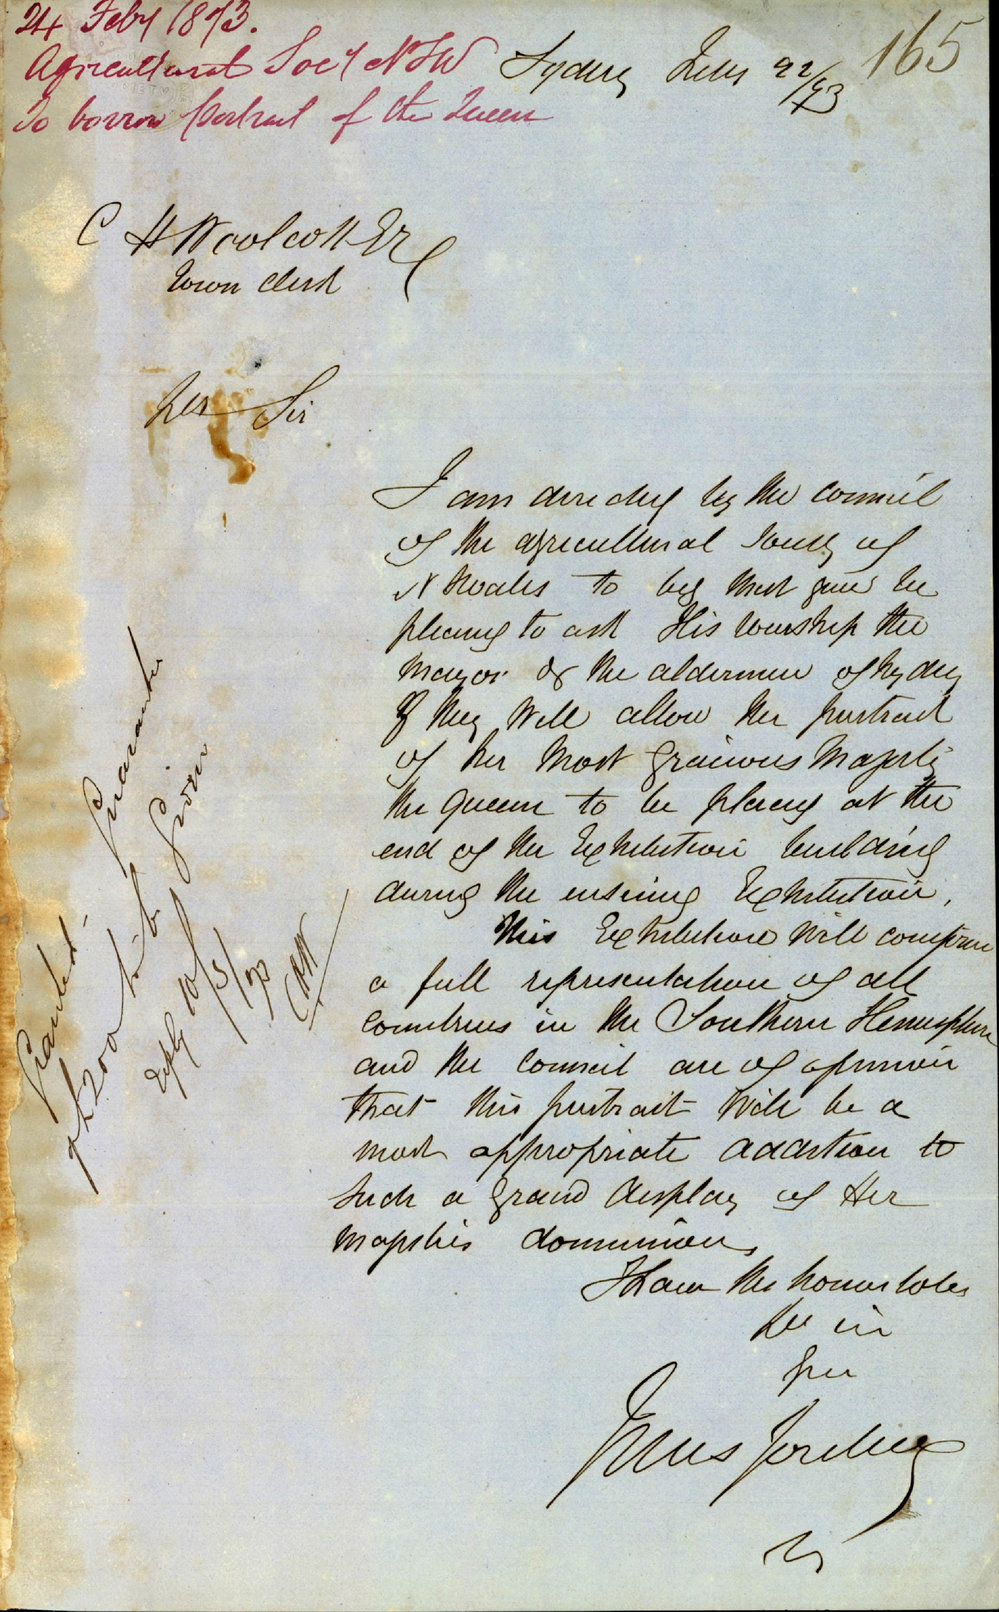 24 Feby 1873.
Agricultural Soc'y NSW
To borrow Portrait of the Queen
Sydney Feby 22/73
165
C H Woolcott Esq
Town Clerk
Dear Sir
I am directed by the Council
of the agricultural Society of
N S Wales to beg that you will be
pleased to ask His Worship the
Mayor & the aldermen of Sydney
If they Will allow the portrait
of her Most Gracious Majesty
the Queen to be placed at the
end of the Exhibition building
during the ensuing Exhibition.
This Exhibition Will comprise
a full representation of all
Countries in the Southern Hemisphere
and the Council are of opinion
that this portrait Will be a
most appropriate addition to
Such a grand display of Her
Majesties dominions
I have the honor to be
Dear Sir
Yours
Jules Joubert
Granted -
of £200 to be Guarantee
Given
Reply 10/3/73
CHW